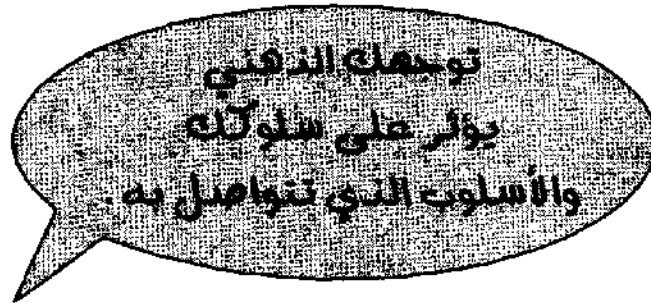 توجهك الذهني
يؤثر على سلوكك
والأسلوب الذي تتواصل به .